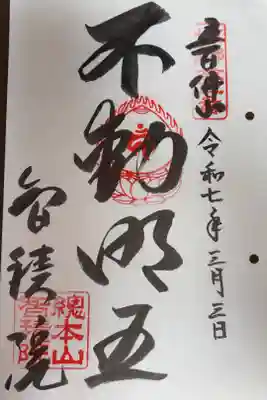 五百佛山
令和七年三月三日
不動明王
智積院
總本山
智積院